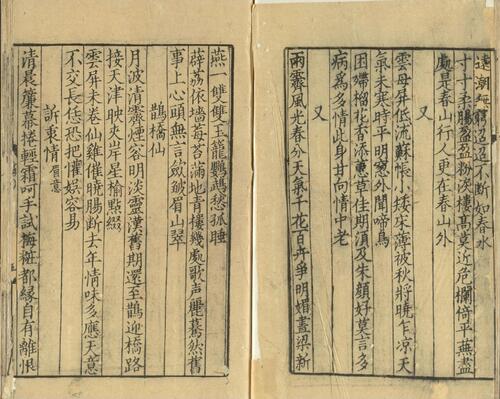 遠漸無窮迢迢不斷如春水
寸寸柔腸盈盈粉淚樓高莫近危欄倚平蕪盡
處是春山行人更在春山外
又
雲母屏低流蘇帳小矮床薄被秋將曉乍凉天
氣未寒時平明窓外聞啼鳥
困殢榴花香添蕙草佳期須及朱顔好莫言多
病爲多情此身甘向情中老
又
雨霽風光春分天氣千花百卉爭明媚畫梁新
燕一雙雙玉籠鸚鵡愁孤睡
薜荔依墻莓苔滿地青樓幾處歌声麗驀然舊
事上心頭無言歛皺眉山翠
鵲橋仙
月波清霽煙容明淡靈漢舊期還至鵲迎橋路
接天津映夾岸星榆點綴
雲屏未卷仙雞催曉腸斷去年情味多應天意
不交長恁恐把懽娛容易
訴衷情 眉意
清晨簾幕捲輕霜呵手試梅粧都緣自有離恨